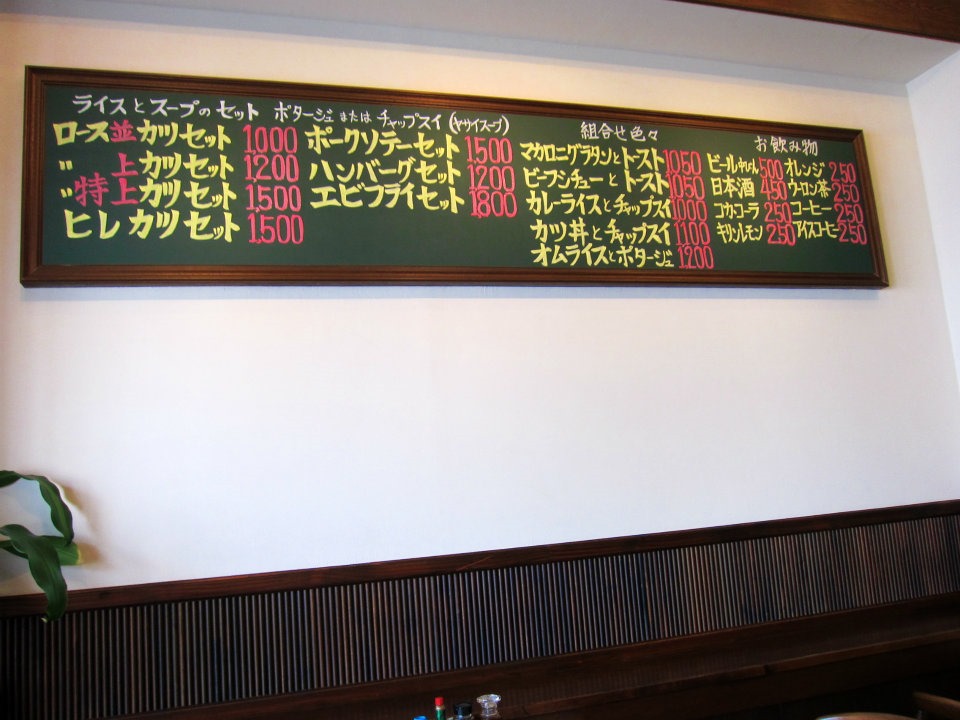 ライスとスープのセット ポタージュ または チャップスイ(ヤサイスープ)
ロース並カツセット 1,000
〃 上カツセット 1,200
〃特上カツセット 1,500
ヒレカツセット 1,500
ポークソテーセット 1,500
ハンバーグセット 1,200
エビフライセット 1,800
組合せ色々
マカロニグラタンとトースト 1050
ビーフシチューとトースト 1050
カレーライスとチャップスイ 1000
カツ丼とチャップスイ 1100
オムライスとポタージュ 1,200
お飲み物
ビール中びん 500
日本酒 450
コカ・コーラ 250
キリンレモン 250
オレンジ 250
ウーロン茶 250
コーヒー 250
アイスコーヒー 250